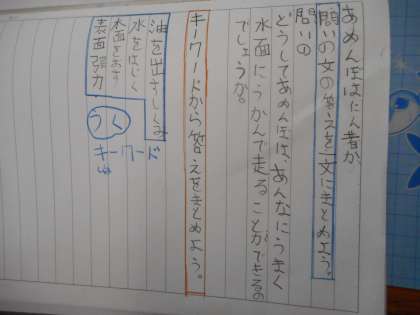 あめんぼはにん者か
問いの文の答えを一文にまとめよう。
問いの
どうしてあめんぼは、あんなにうまく
水面にうかんで走ることができるの
でしょうか。
キーワードから答えをまとめよう。
油を出すしくみ
水をはじく
水面をおす
表面張力
うく
キーワード